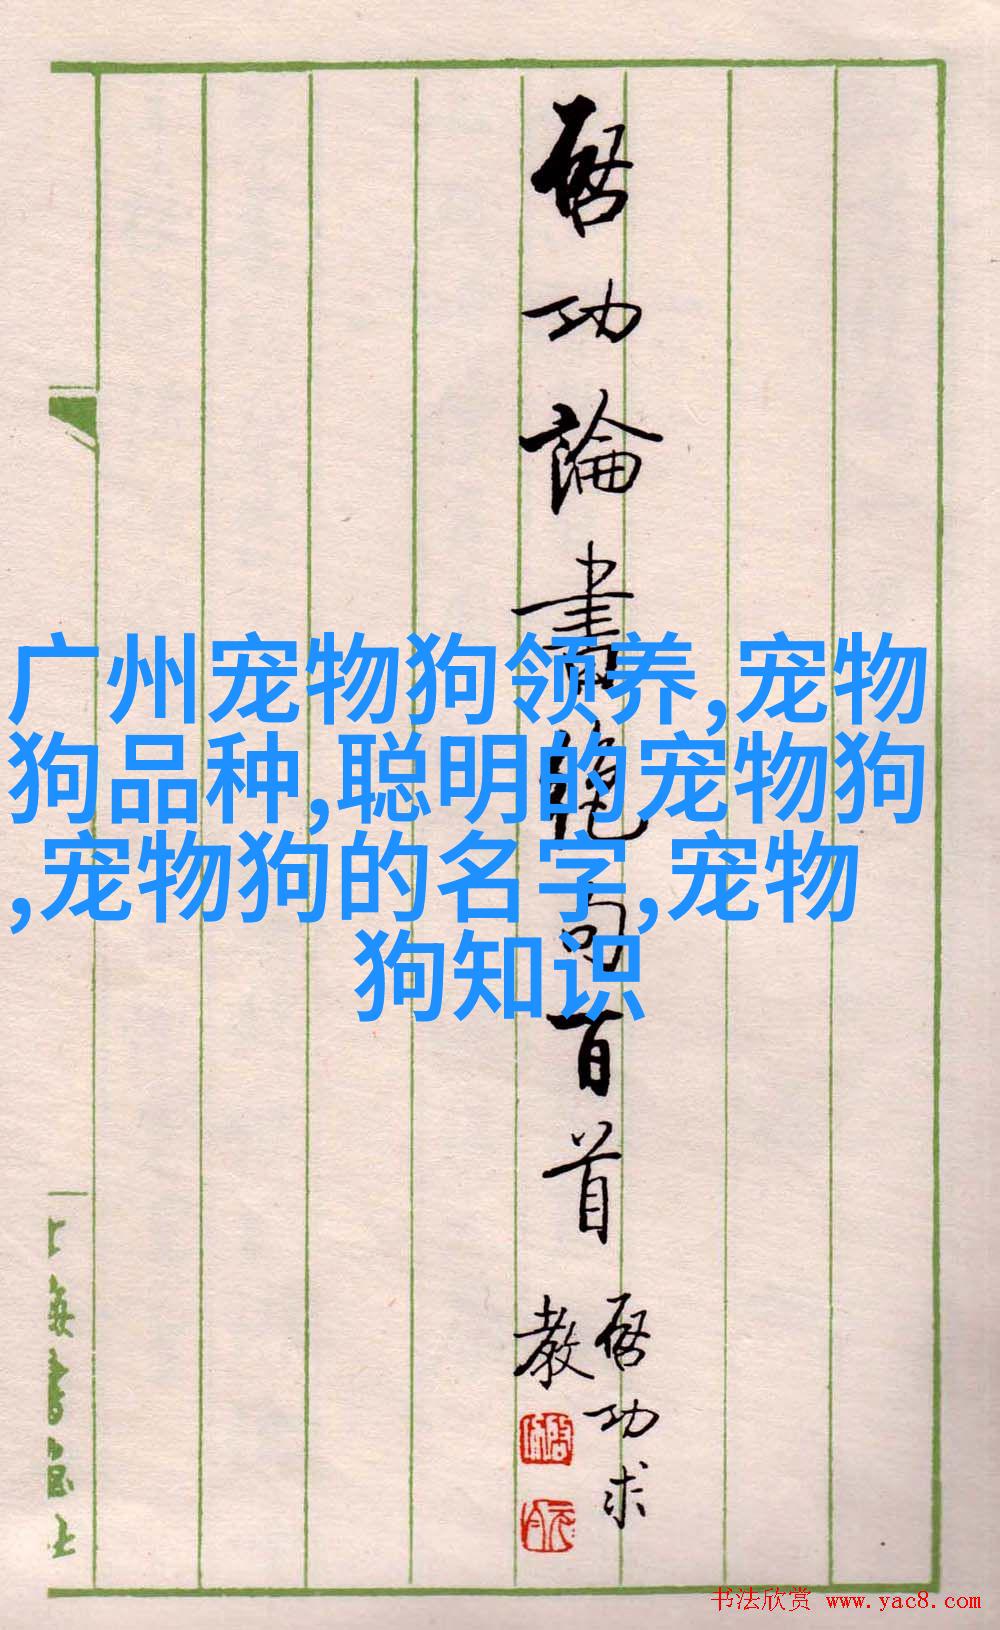 啓功論書絕句百首
啓功求
教
广州宠物狗领养,宠物
狗品种,聪明的宠物狗
,宠物狗的名字,宠物
狗知识
上海書畫社
书法欣赏 www.yac8.com